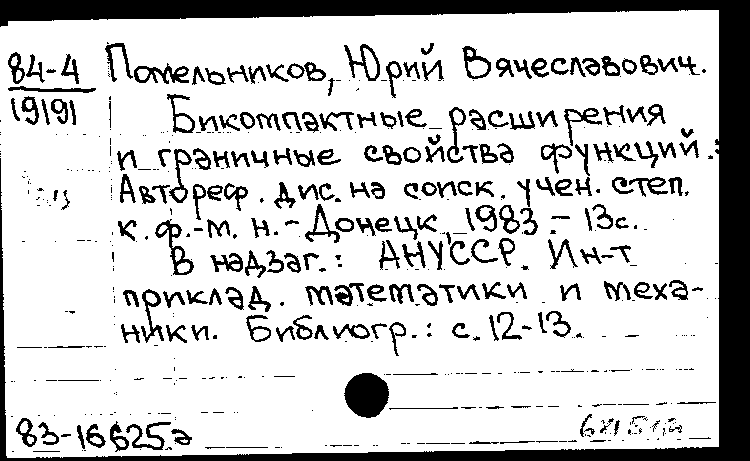 84-4 Помельников, Юрий Вячеславович.
19191
Бикомпактные расширения
и граничные свойства функций.:
Автореф. дис. на соиск. учен. степ.
к. ф.-м. н. - Донецк, 1983. - 13с.
В надзаг.: АНУССР. Ин-т
приклад. математики и меха-
ники. Библиогр.: с. 12-13.
83-16625а